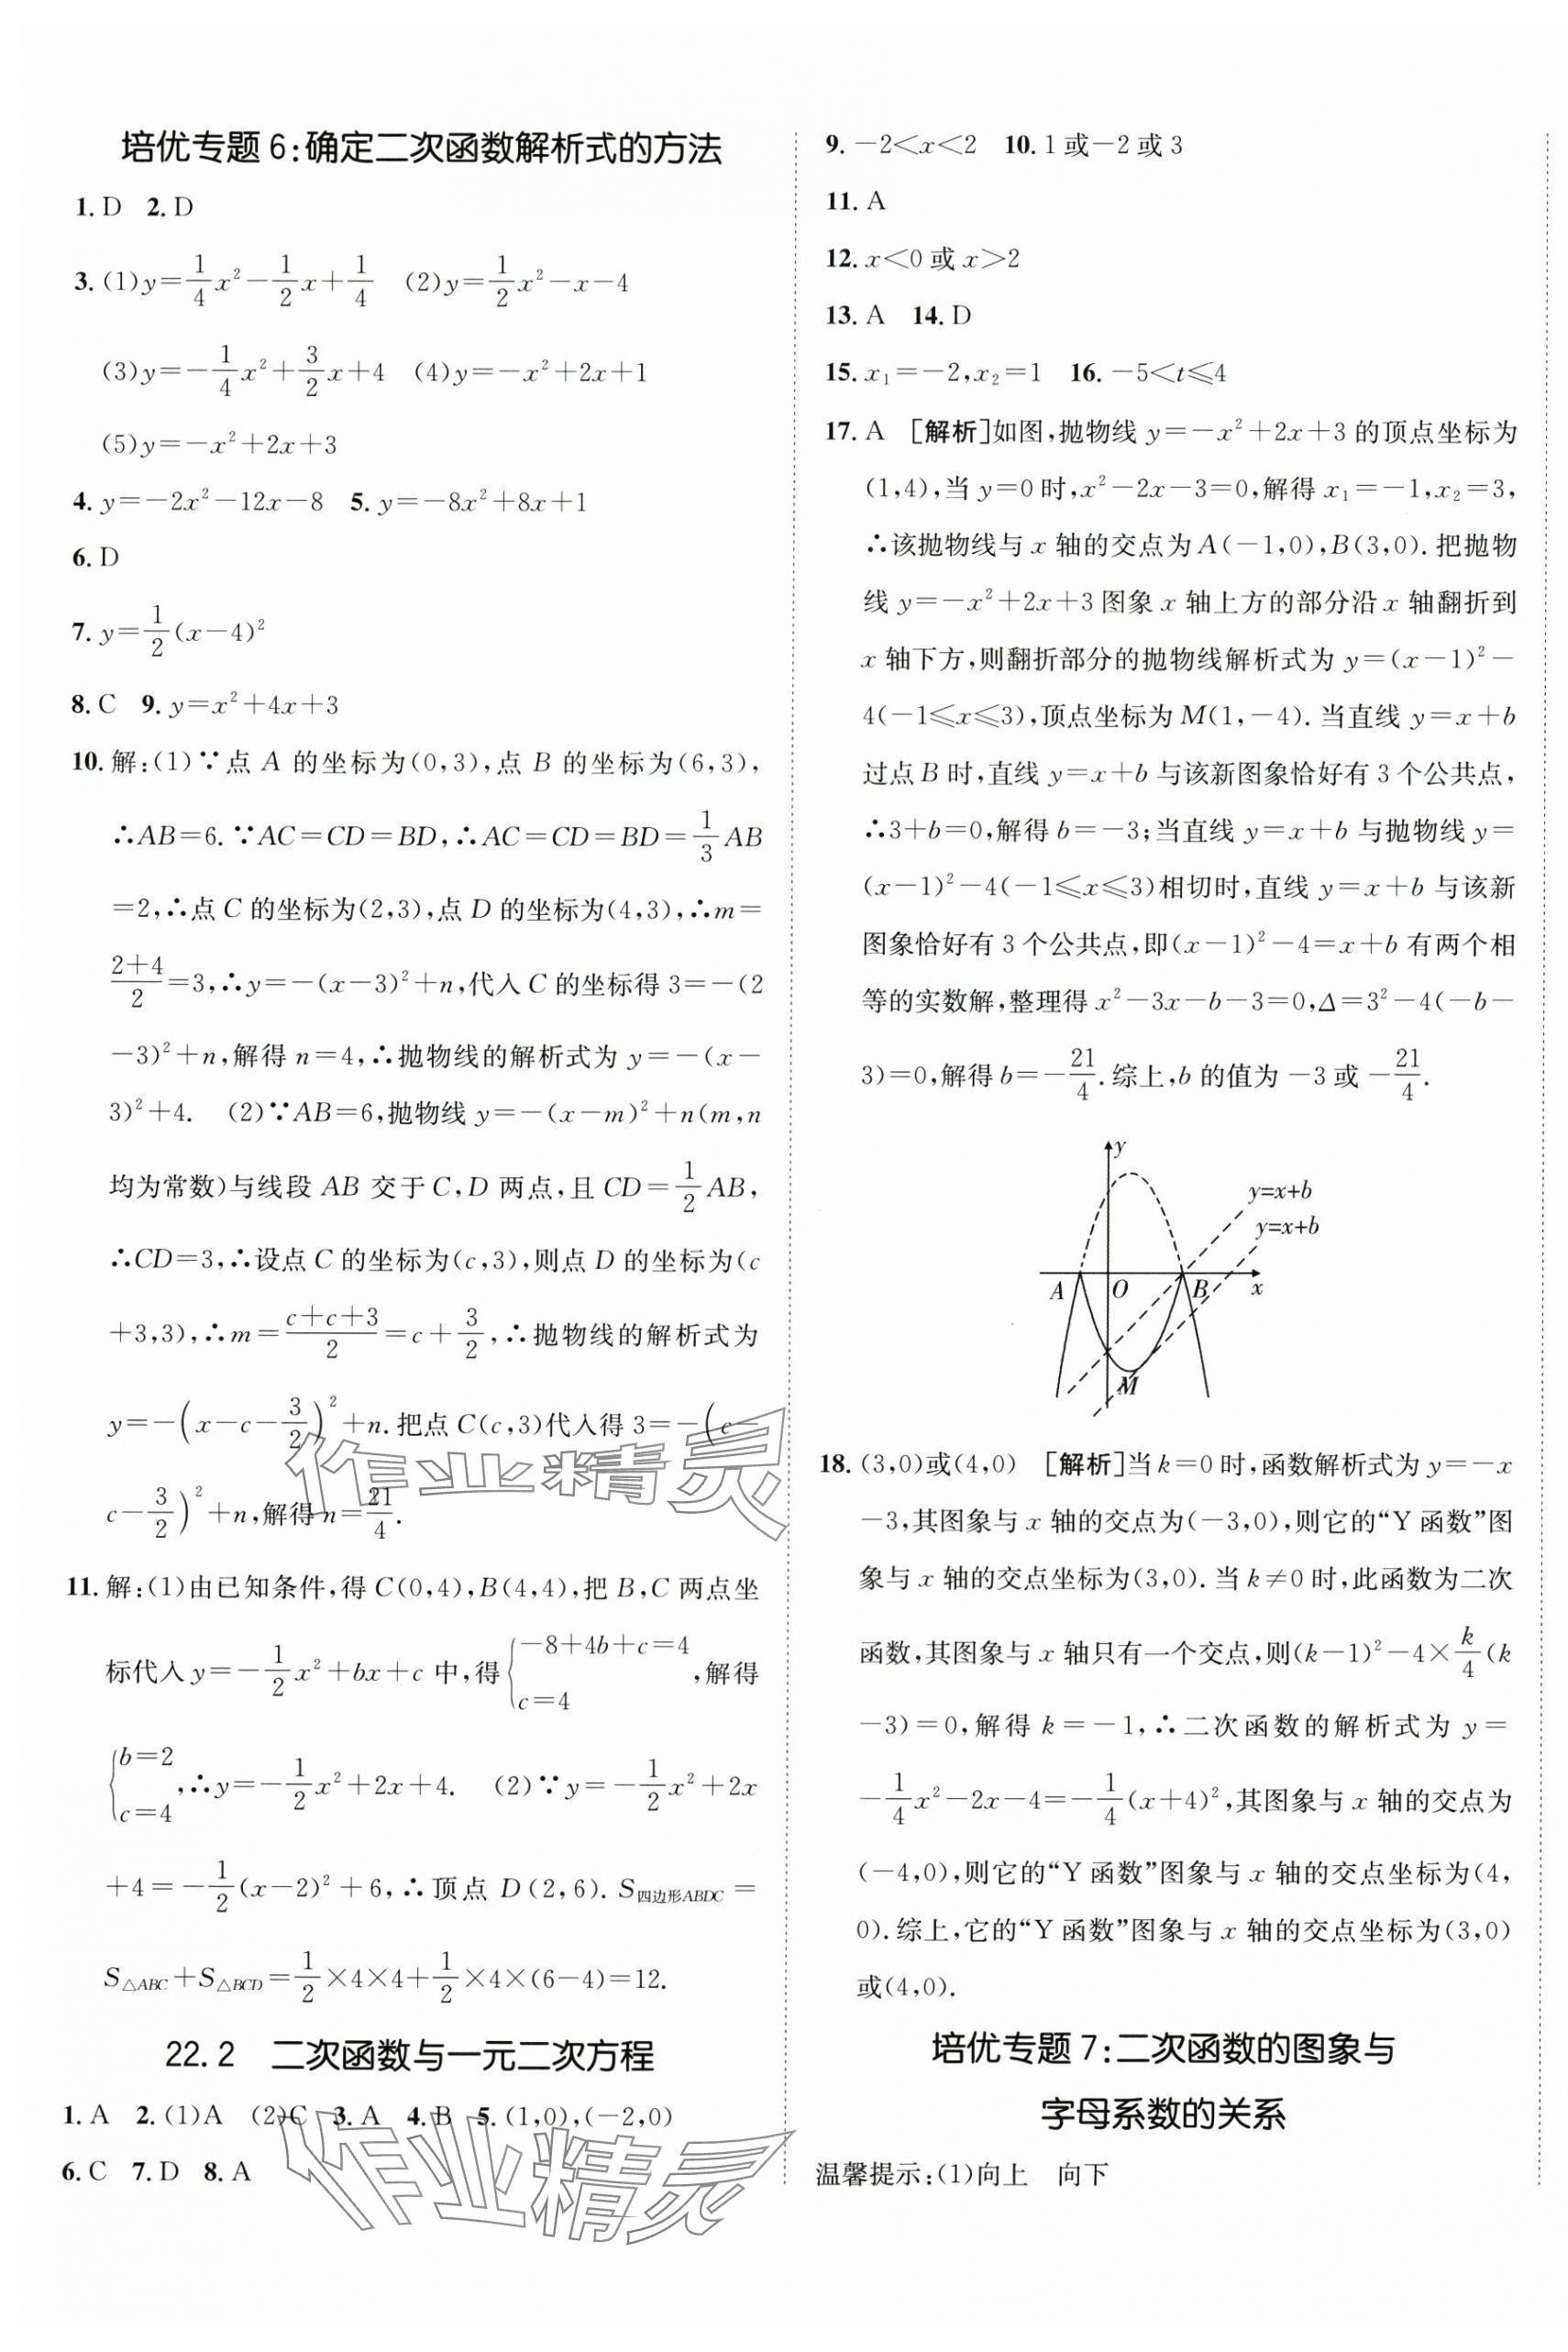 培优专题6:确定二次函数解析式的方法
1. D 2. D
3. (1)y=1/4x²-1/2x+1/4 (2)y=1/2x²-x-4
(3)y=-1/4x²+3/2x+4 (4)y=-x²+2x+1
(5)y=-x²+2x+3
4. y=-2x²-12x-8 5. y=-8x²+8x+1
6. D
7. y=1/2(x-4)²
8. C 9. y=x²+4x+3
10. 解:(1)∵点 A 的坐标为(0,3),点 B 的坐标为(6,3),
∴AB=6.∵AC=CD=BD,∴AC=CD=BD=1/3AB
=2,∴点 C 的坐标为(2,3),点 D 的坐标为(4,3),∴m=
(2+4)/2=3,∴y=-(x-3)²+n,代入 C 的坐标得 3=-(2
-3)²+n,解得 n=4,∴抛物线的解析式为 y=-(x-
3)²+4. (2)∵AB=6,抛物线 y=-(x-m)²+n(m,n
均为常数)与线段 AB 交于 C,D 两点,且 CD=1/2AB,
∴CD=3,∴设点 C 的坐标为(c,3),则点 D 的坐标为(c
+3,3),∴m=(c+c+3)/2=c+3/2,∴抛物线的解析式为
y=-(x-c-3/2)²+n.把点 C(c,3)代入得 3=-(c-
c-3/2)²+n,解得 n=21/4.
11. 解:(1)由已知条件,得 C(0,4),B(4,4),把 B,C 两点坐
标代入 y=-1/2x²+bx+c 中,得{-8+4b+c=4 c=4,解得
{b=2 c=4,∴y=-1/2x²+2x+4. (2)∵y=-1/2x²+2x
+4=-1/2(x-2)²+6,∴顶点 D(2,6). S四边形ABDC=
S△ABC+S△BCD=1/2×4×4+1/2×4×(6-4)=12.
22.2 二次函数与一元二次方程
1. A 2. (1)A (2)C 3. A 4. B 5. (1,0),(-2,0)
6. C 7. D 8. A
9. -2<x<2 10. 1 或-2 或 3
11. A
12. x<0 或 x>2
13. A 14. D
15. x₁=-2,x₂=1 16. -5<t≤4
17. A [解析]如图,抛物线 y=-x²+2x+3 的顶点坐标为
(1,4),当 y=0 时,x²-2x-3=0,解得 x₁=-1,x₂=3,
∴该抛物线与 x 轴的交点为 A(-1,0),B(3,0).把抛物
线 y=-x²+2x+3 图象 x 轴上方的部分沿 x 轴翻折到
x 轴下方,则翻折部分的抛物线解析式为 y=(x-1)²-
4(-1≤x≤3),顶点坐标为 M(1,-4).当直线 y=x+b
过点 B 时,直线 y=x+b 与该新图象恰好有 3 个公共点,
∴3+b=0,解得 b=-3;当直线 y=x+b 与抛物线 y=
(x-1)²-4(-1≤x≤3)相切时,直线 y=x+b 与该新
图象恰好有 3 个公共点,即(x-1)²-4=x+b 有两个相
等的实数解,整理得 x²-3x-b-3=0,Δ=3²-4(-b-
3)=0,解得 b=-21/4.综上,b 的值为-3 或-21/4.
y
y=x+b
y=x+b
A O B x
M
18. (3,0)或(4,0) [解析]当 k=0 时,函数解析式为 y=-x
-3,其图象与 x 轴的交点为(-3,0),则它的“Y 函数”图
象与 x 轴的交点坐标为(3,0).当 k≠0 时,此函数为二次
函数,其图象与 x 轴只有一个交点,则(k-1)²-4×k/4(k
-3)=0,解得 k=-1,∴二次函数的解析式为 y=
-1/4x²-2x-4=-1/4(x+4)²,其图象与 x 轴的交点为
(-4,0),则它的“Y 函数”图象与 x 轴的交点坐标为(4,
0).综上,它的“Y 函数”图象与 x 轴的交点坐标为(3,0)
或(4,0).
培优专题7:二次函数的图象与
字母系数的关系
温馨提示:(1)向上 向下
作业精灵
作业精灵